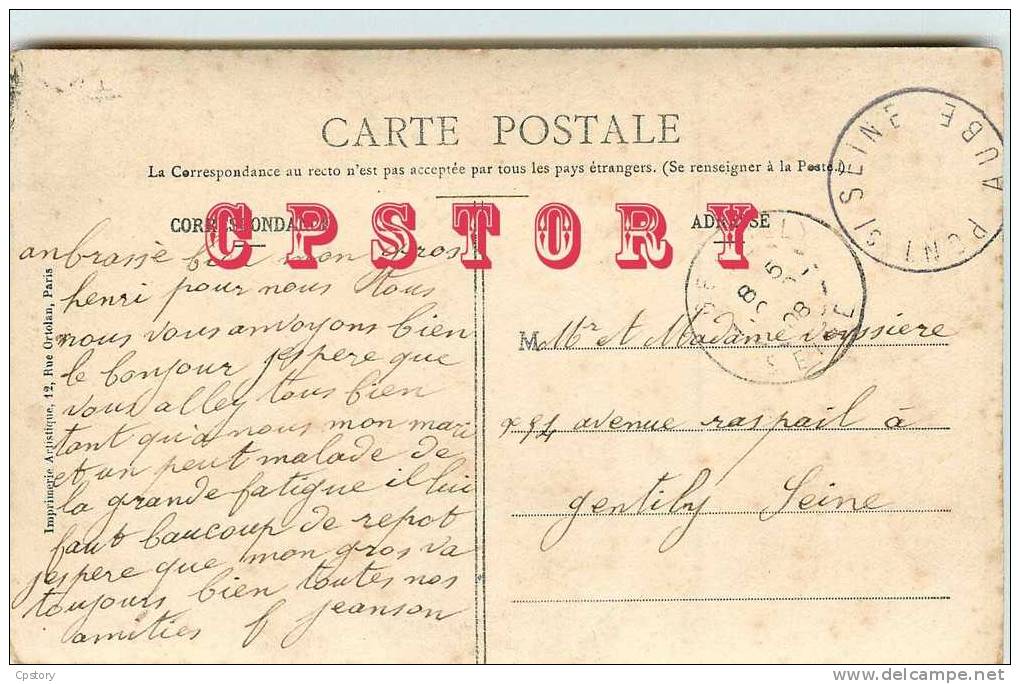 CARTE POSTALE
La Correspondance au recto n'est pas acceptée par tous les pays étrangers. (Se renseigner à la Poste.)
CORRESPONDANCE
ADRESSE
CPSTORY
anbrassè bien mon gros
henri pour nous tous
nous vous anvoyons bien
le bonjour jespere que
vous alley tous bien
tant qu'a nous mon mari
et un peut malade de
la grande fatigue il lui
faut baucoup de repot
jespere que mon gros va
toujours bien toutes nos
amities f jeanson
Imprimerie Artistique, 12, Rue Ortolan, Paris
M Mr et Madame
94 avenue raspail à
gentily Seine
PONT S/ SEINE AUBE
SEINE
08
Cpstory
www.delcampe.net